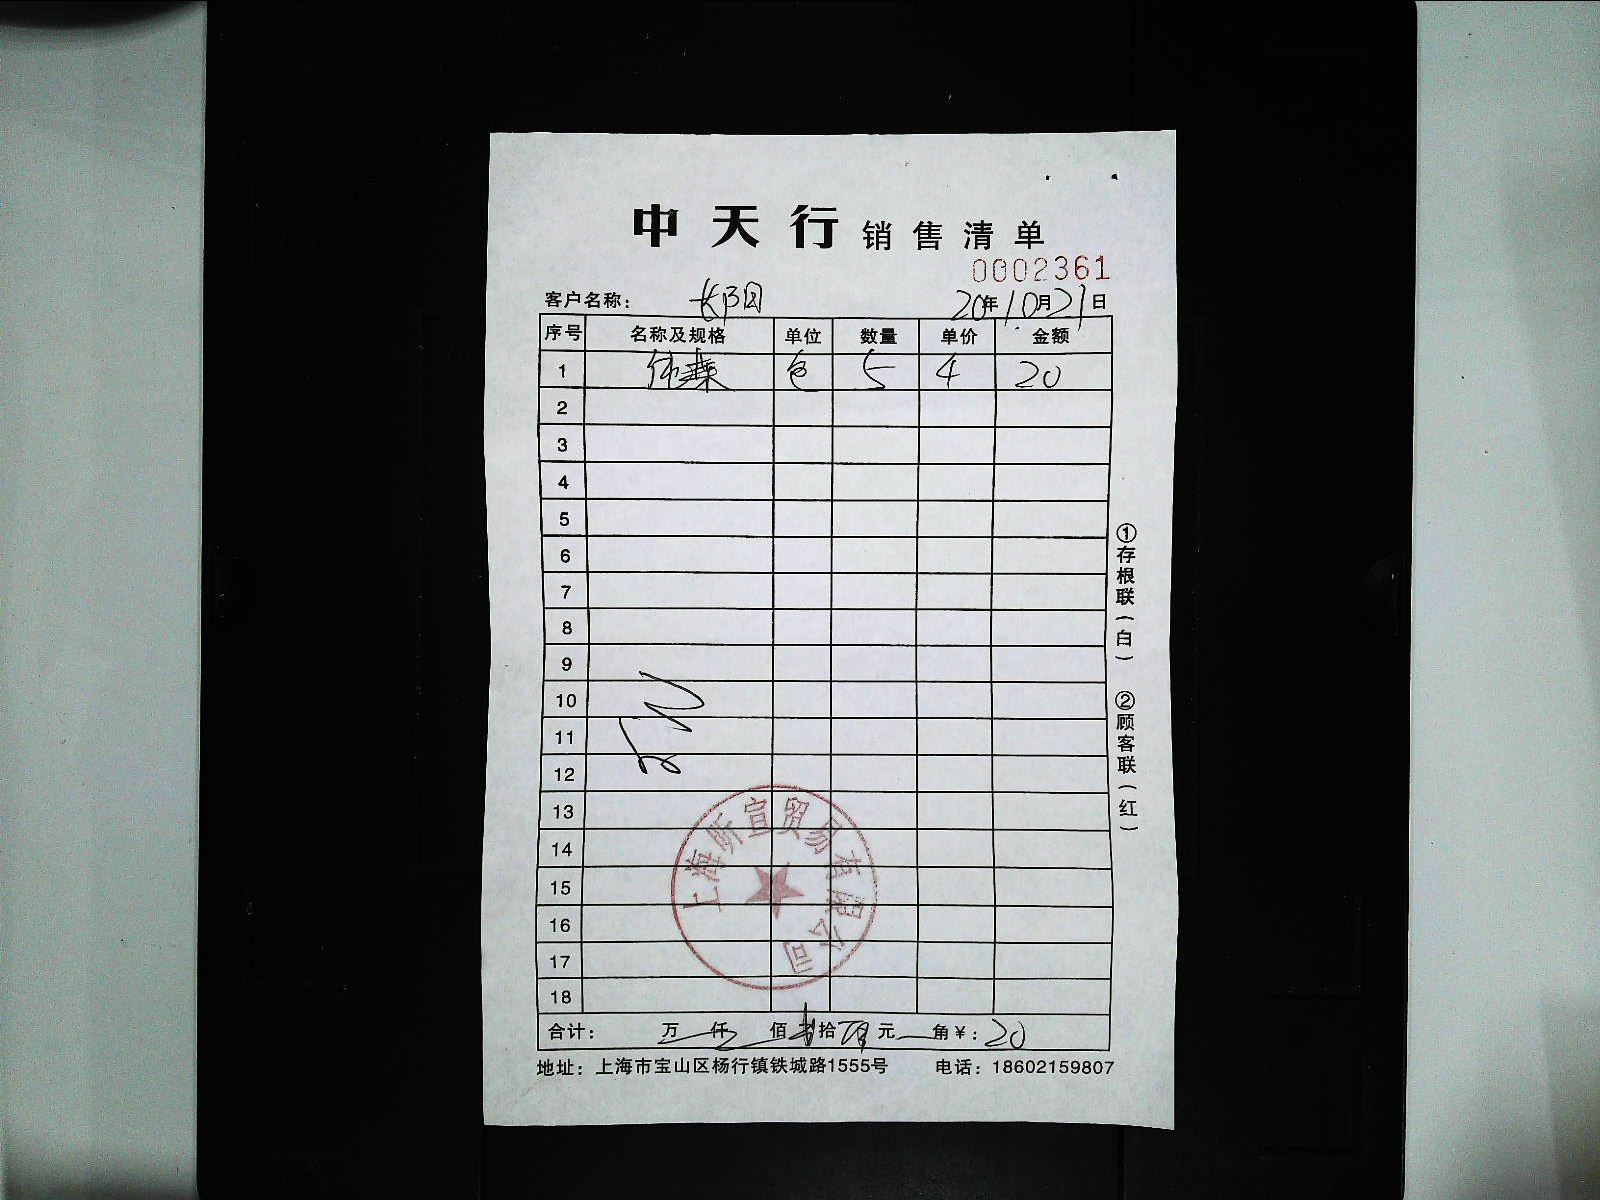 中天行 销售清单
0002361
客户名称： 20年10月21日
序号 名称及规格 单位 数量 单价 金额
1 包 5 4 20
2
3
4
5
6
7
8
9
10
11
12
13
14
15
16
17
18
上海昕宣贸易有限公司
合计： 万 仟 佰 拾 元 角 ¥：20
地址：上海市宝山区杨行镇铁城路1555号 电话：18602159807
①存根联（白）
②顾客联（红）